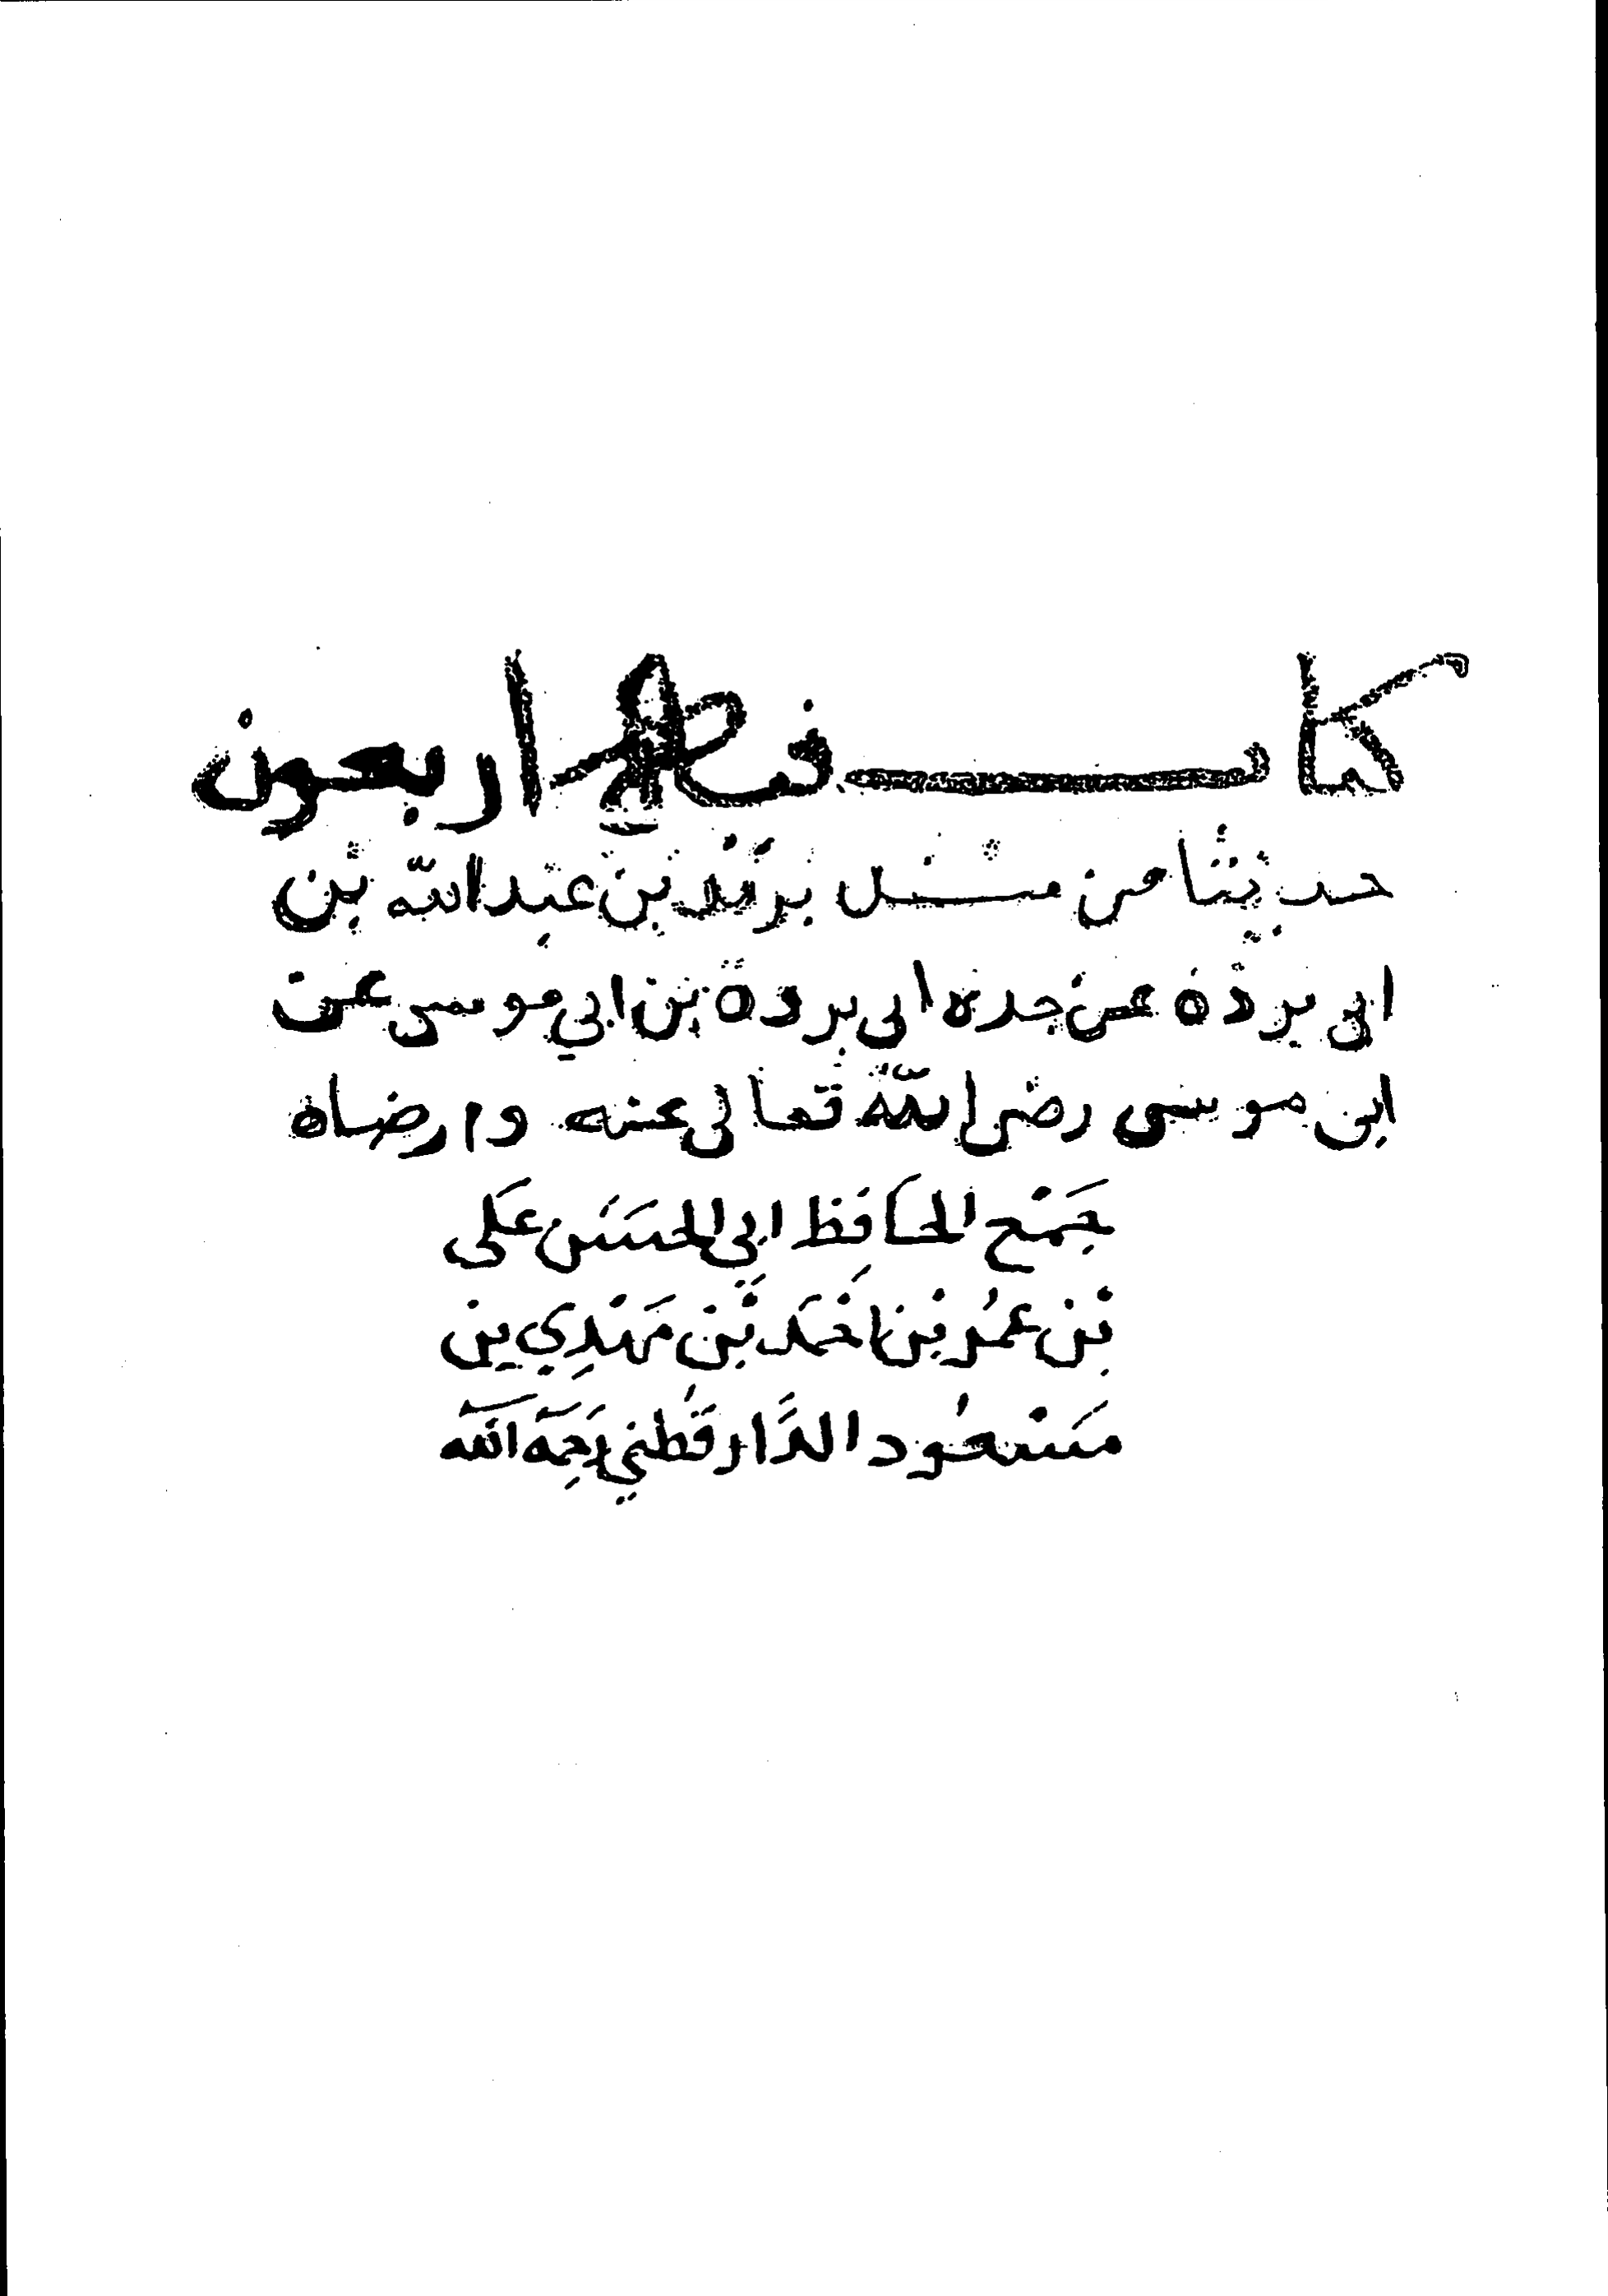 كتاب فيه اربعون
حديثا من مسند بريد بن عبد الله بن
ابي بردة عن جده ابى بردة بن ابي موسى عن
ابى موسى رضى الله تعالى عنه وارضاه
جَمْع الحافِظ ابي الحَسَن عَلى
بْن عمُر بْن احْمَد بْن مَهْدِي بن
مَسْعُود الدَّارقُطْني رَحِمَهُ الله